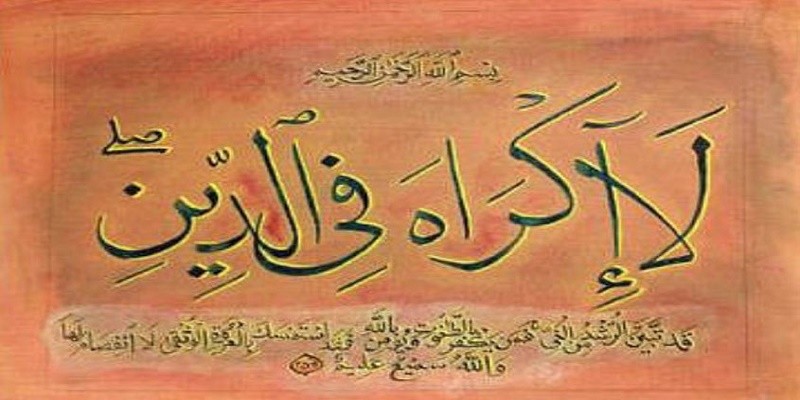 بِسْمِ ٱللَّهِ ٱلرَّحْمَٰنِ ٱلرَّحِيمِ
لَآ إِكْرَاهَ فِى ٱلدِّينِ ۖ
قَد تَّبَيَّنَ ٱلرُّشْدُ مِنَ ٱلْغَىِّ ۚ فَمَن يَكْفُرْ بِٱلطَّٰغُوتِ وَيُؤْمِنۢ بِٱللَّهِ فَقَدِ ٱسْتَمْسَكَ بِٱلْعُرْوَةِ ٱلْوُثْقَىٰ لَا ٱنفِصَامَ لَهَا
وَٱللَّهُ سَمِيعٌ عَلِيمٌ ٢٥٦